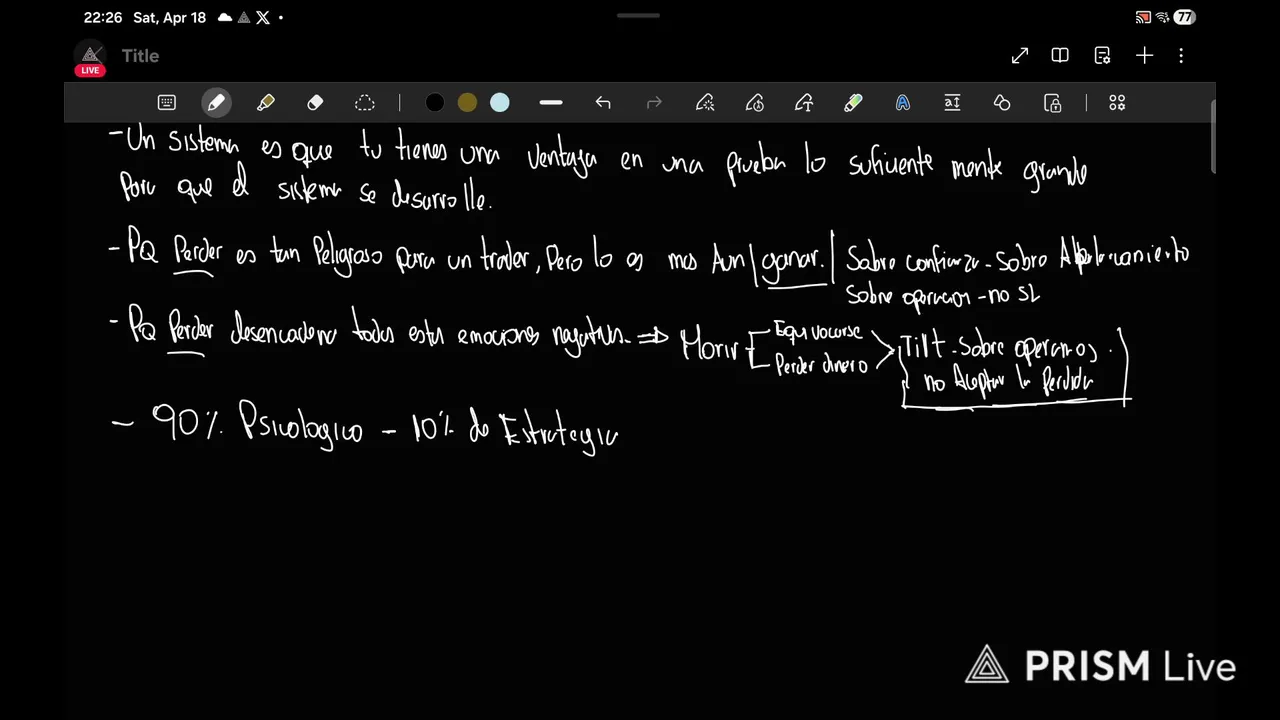 22:26 Sat, Apr 18 77
LIVE Title
-Un sistema es que tu tienes una ventaja en una prueba lo suficiente mente grande
para que el sistema se desarrolle.
-PQ Perder es tan Peligroso para un trader, Pero lo es mas Aun ganar. Sobre confianza - Sobre Apalancamiento
Sobre operacion - no SL
-PQ Perder desencadena todas estas emociones negativas. ⇒ Morir Equivocarse
Perder dinero
Tilt - Sobre operamos.
no Aceptar la Perdida
- 90% Psicologico - 10% de Estrategia
PRISM Live